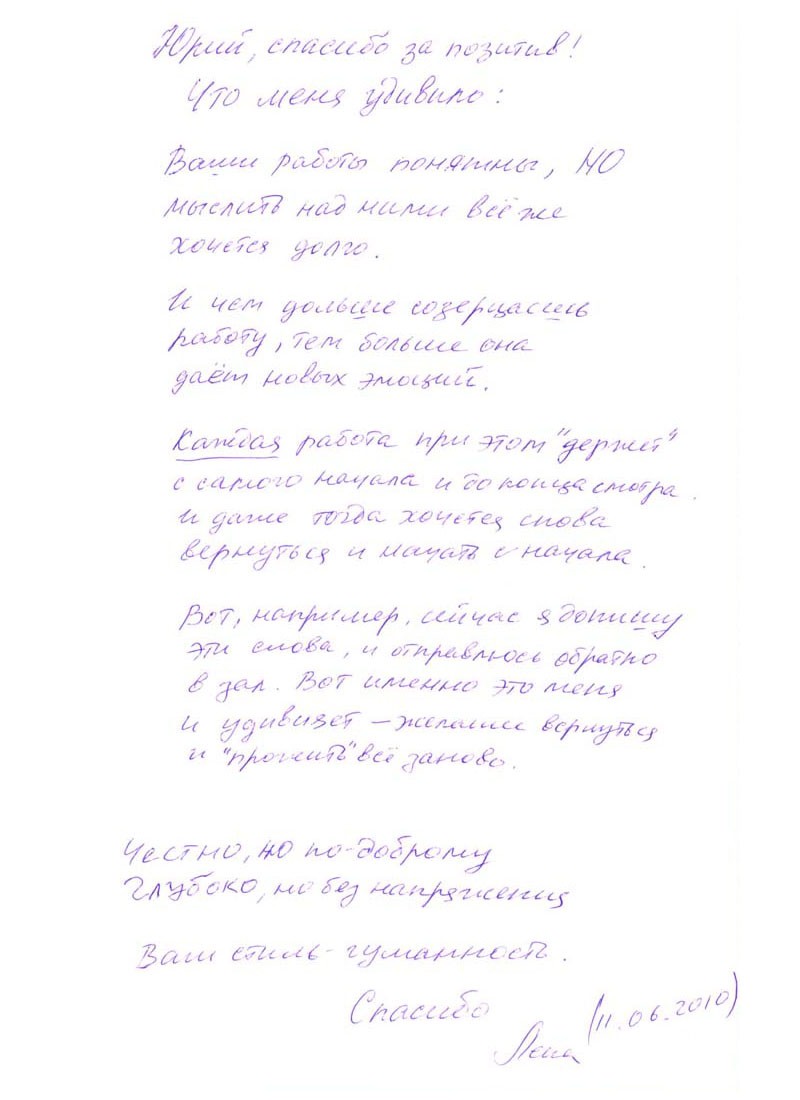 Юрий, спасибо за позитив!
Что меня удивило:
Ваши работы понятны, НО
мыслить над ними всё же
хочется долго.
И чем дольше созерцаешь
работу, тем больше она
даёт новых эмоций.
Каждая работа при этом "держит"
с самого начала и до конца смотра.
И даже тогда хочется снова
вернуться и начать с начала.
Вот, например, сейчас я допишу
эти слова, и отправлюсь обратно
в зал. Вот именно это меня
и удивляет – желание вернуться
и "прожить" всё заново.
Честно, но по-доброму
Глубоко, но без напряжения
Ваш стиль - гуманность.
Спасибо
(11.06.2010)
Лена